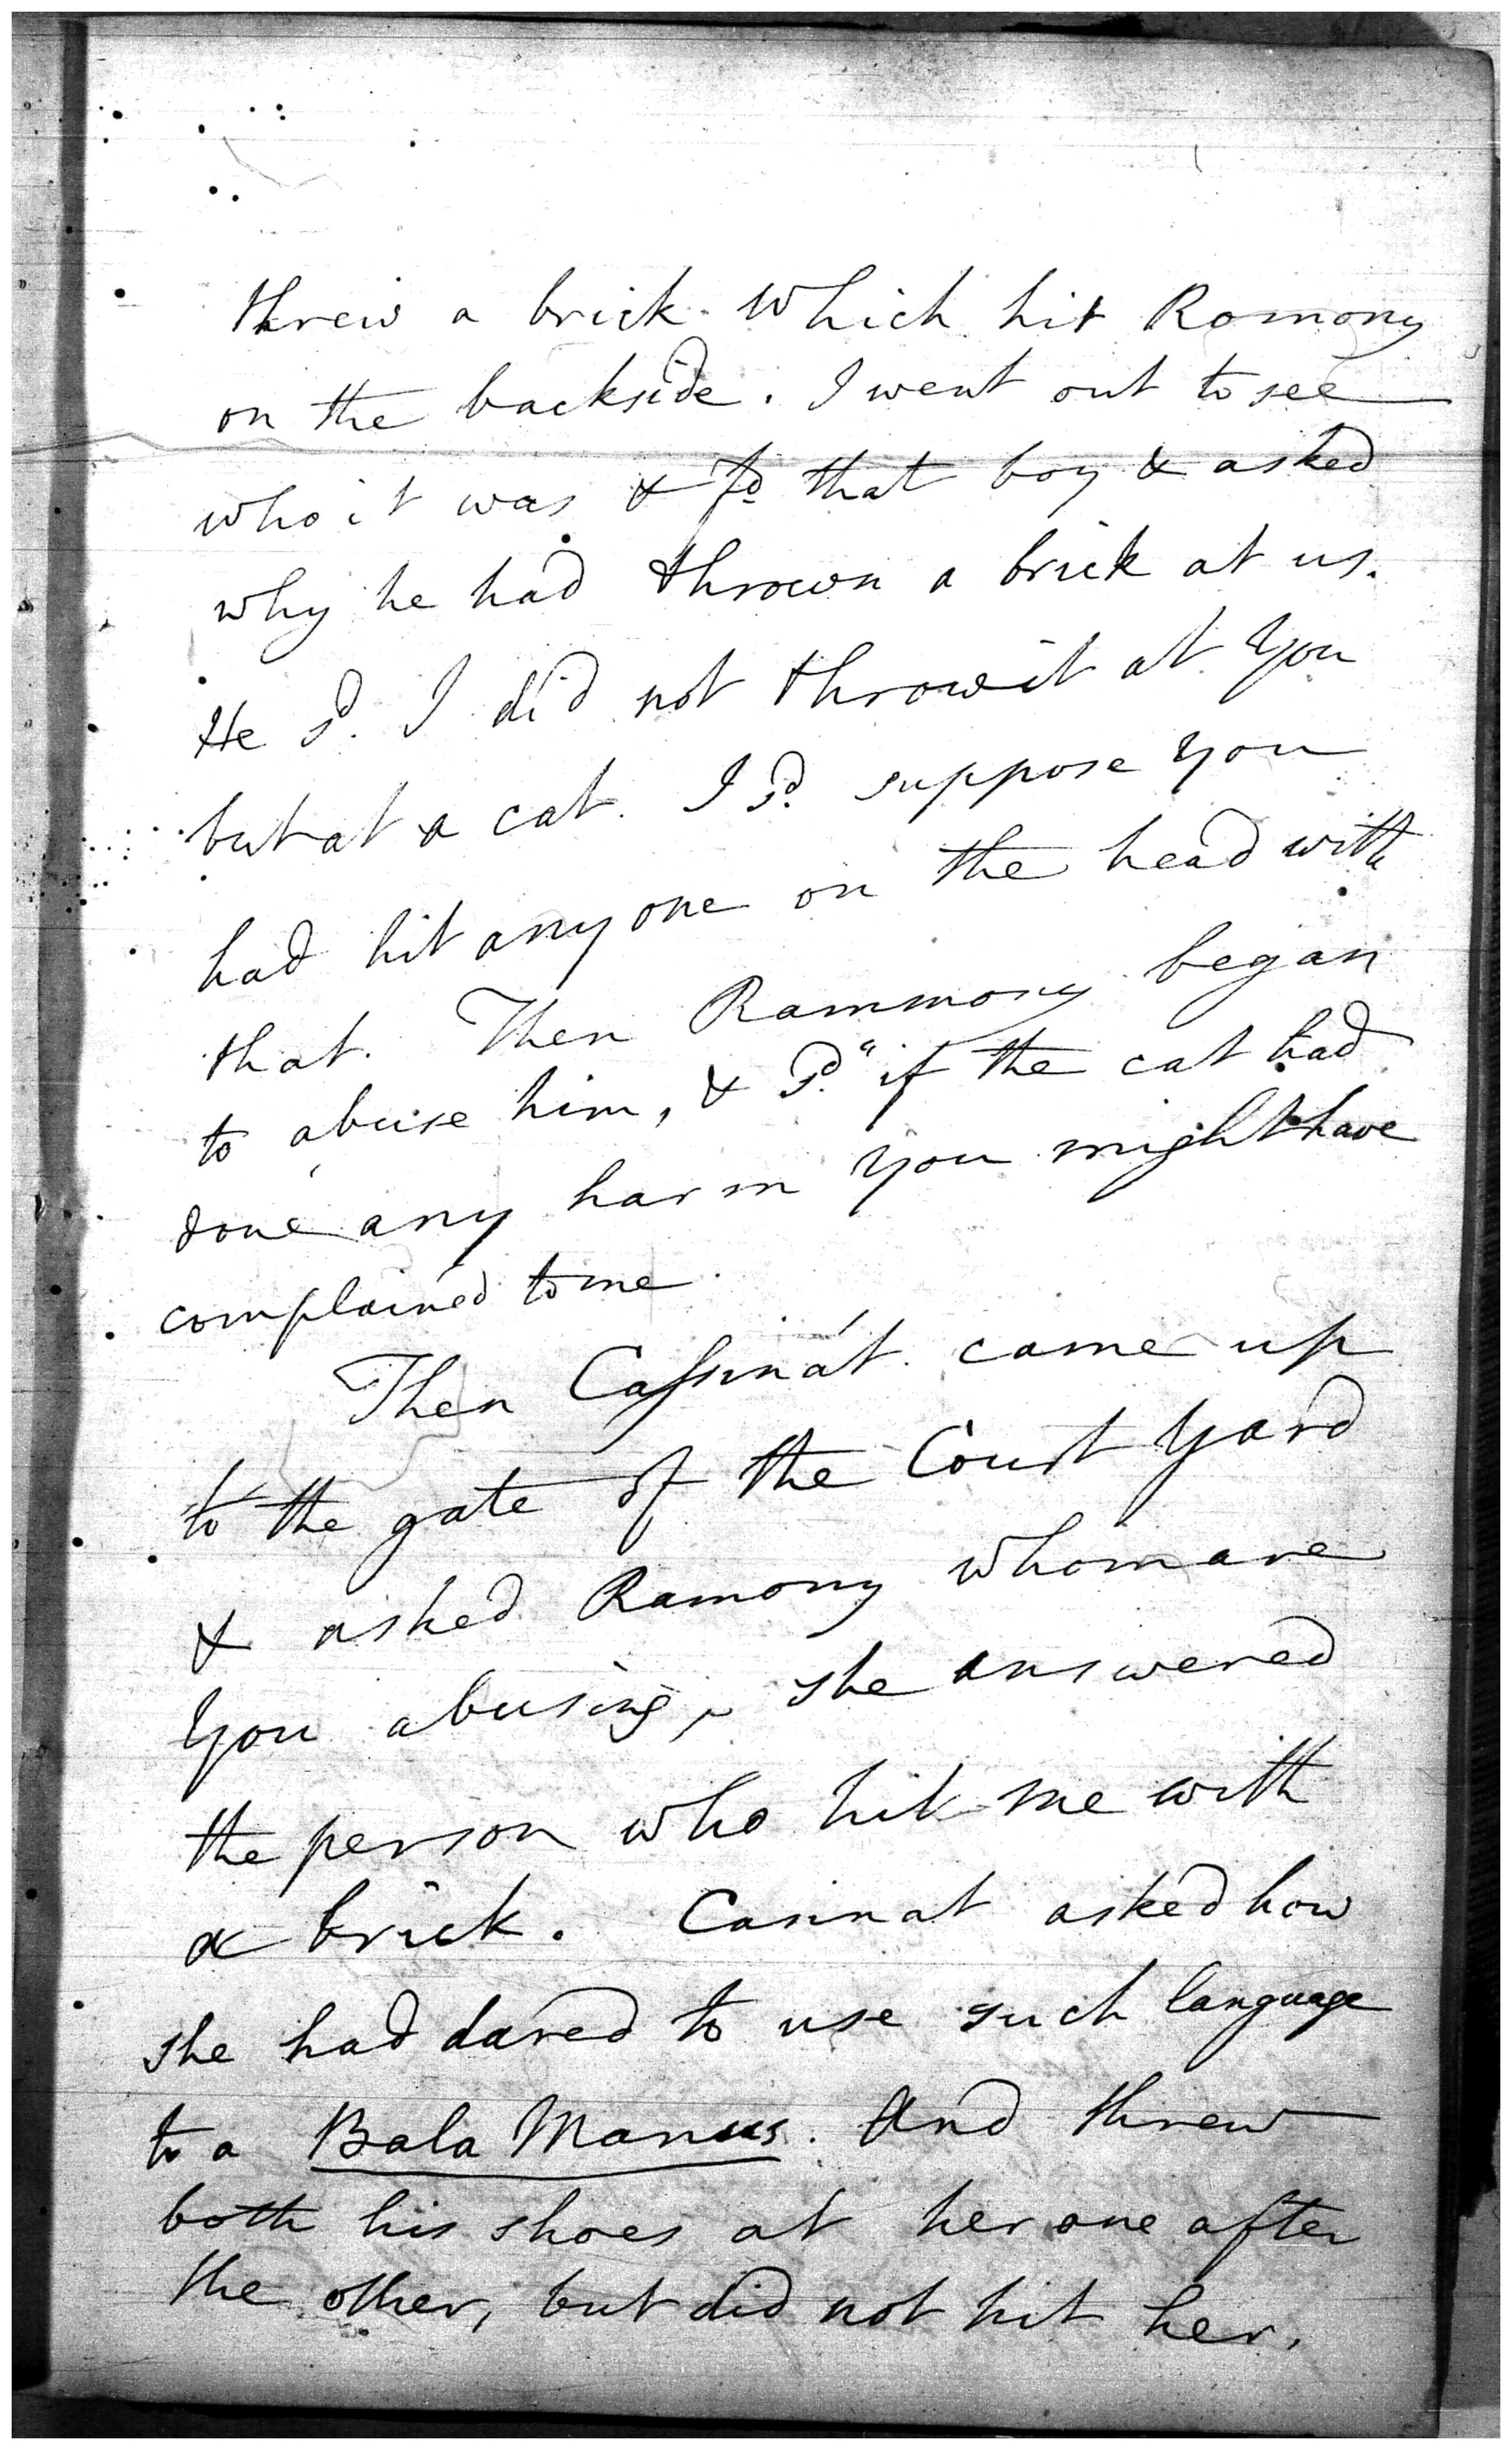 threw a brick which hit Romony
on the backside. I went out to see
who it was & fd that boy & asked
why he had thrown a brick at us.
He sd. I did not throw it at You
but at a cat. I sd. suppose you
had hit any one on the head with
that. Then Rammony began
to abuse him, & sd. "if the cat had
done any harm you might have
complained to me.
Then Cassinat came up
to the gate of the Court Yard
& asked Ramony whom are
You abusing, she answered
the person who hit me with
a brick. Casinat asked how
she had dared to use such language
to a Bala Manus. And threw
both his shoes at her one after
the other, but did not hit her.